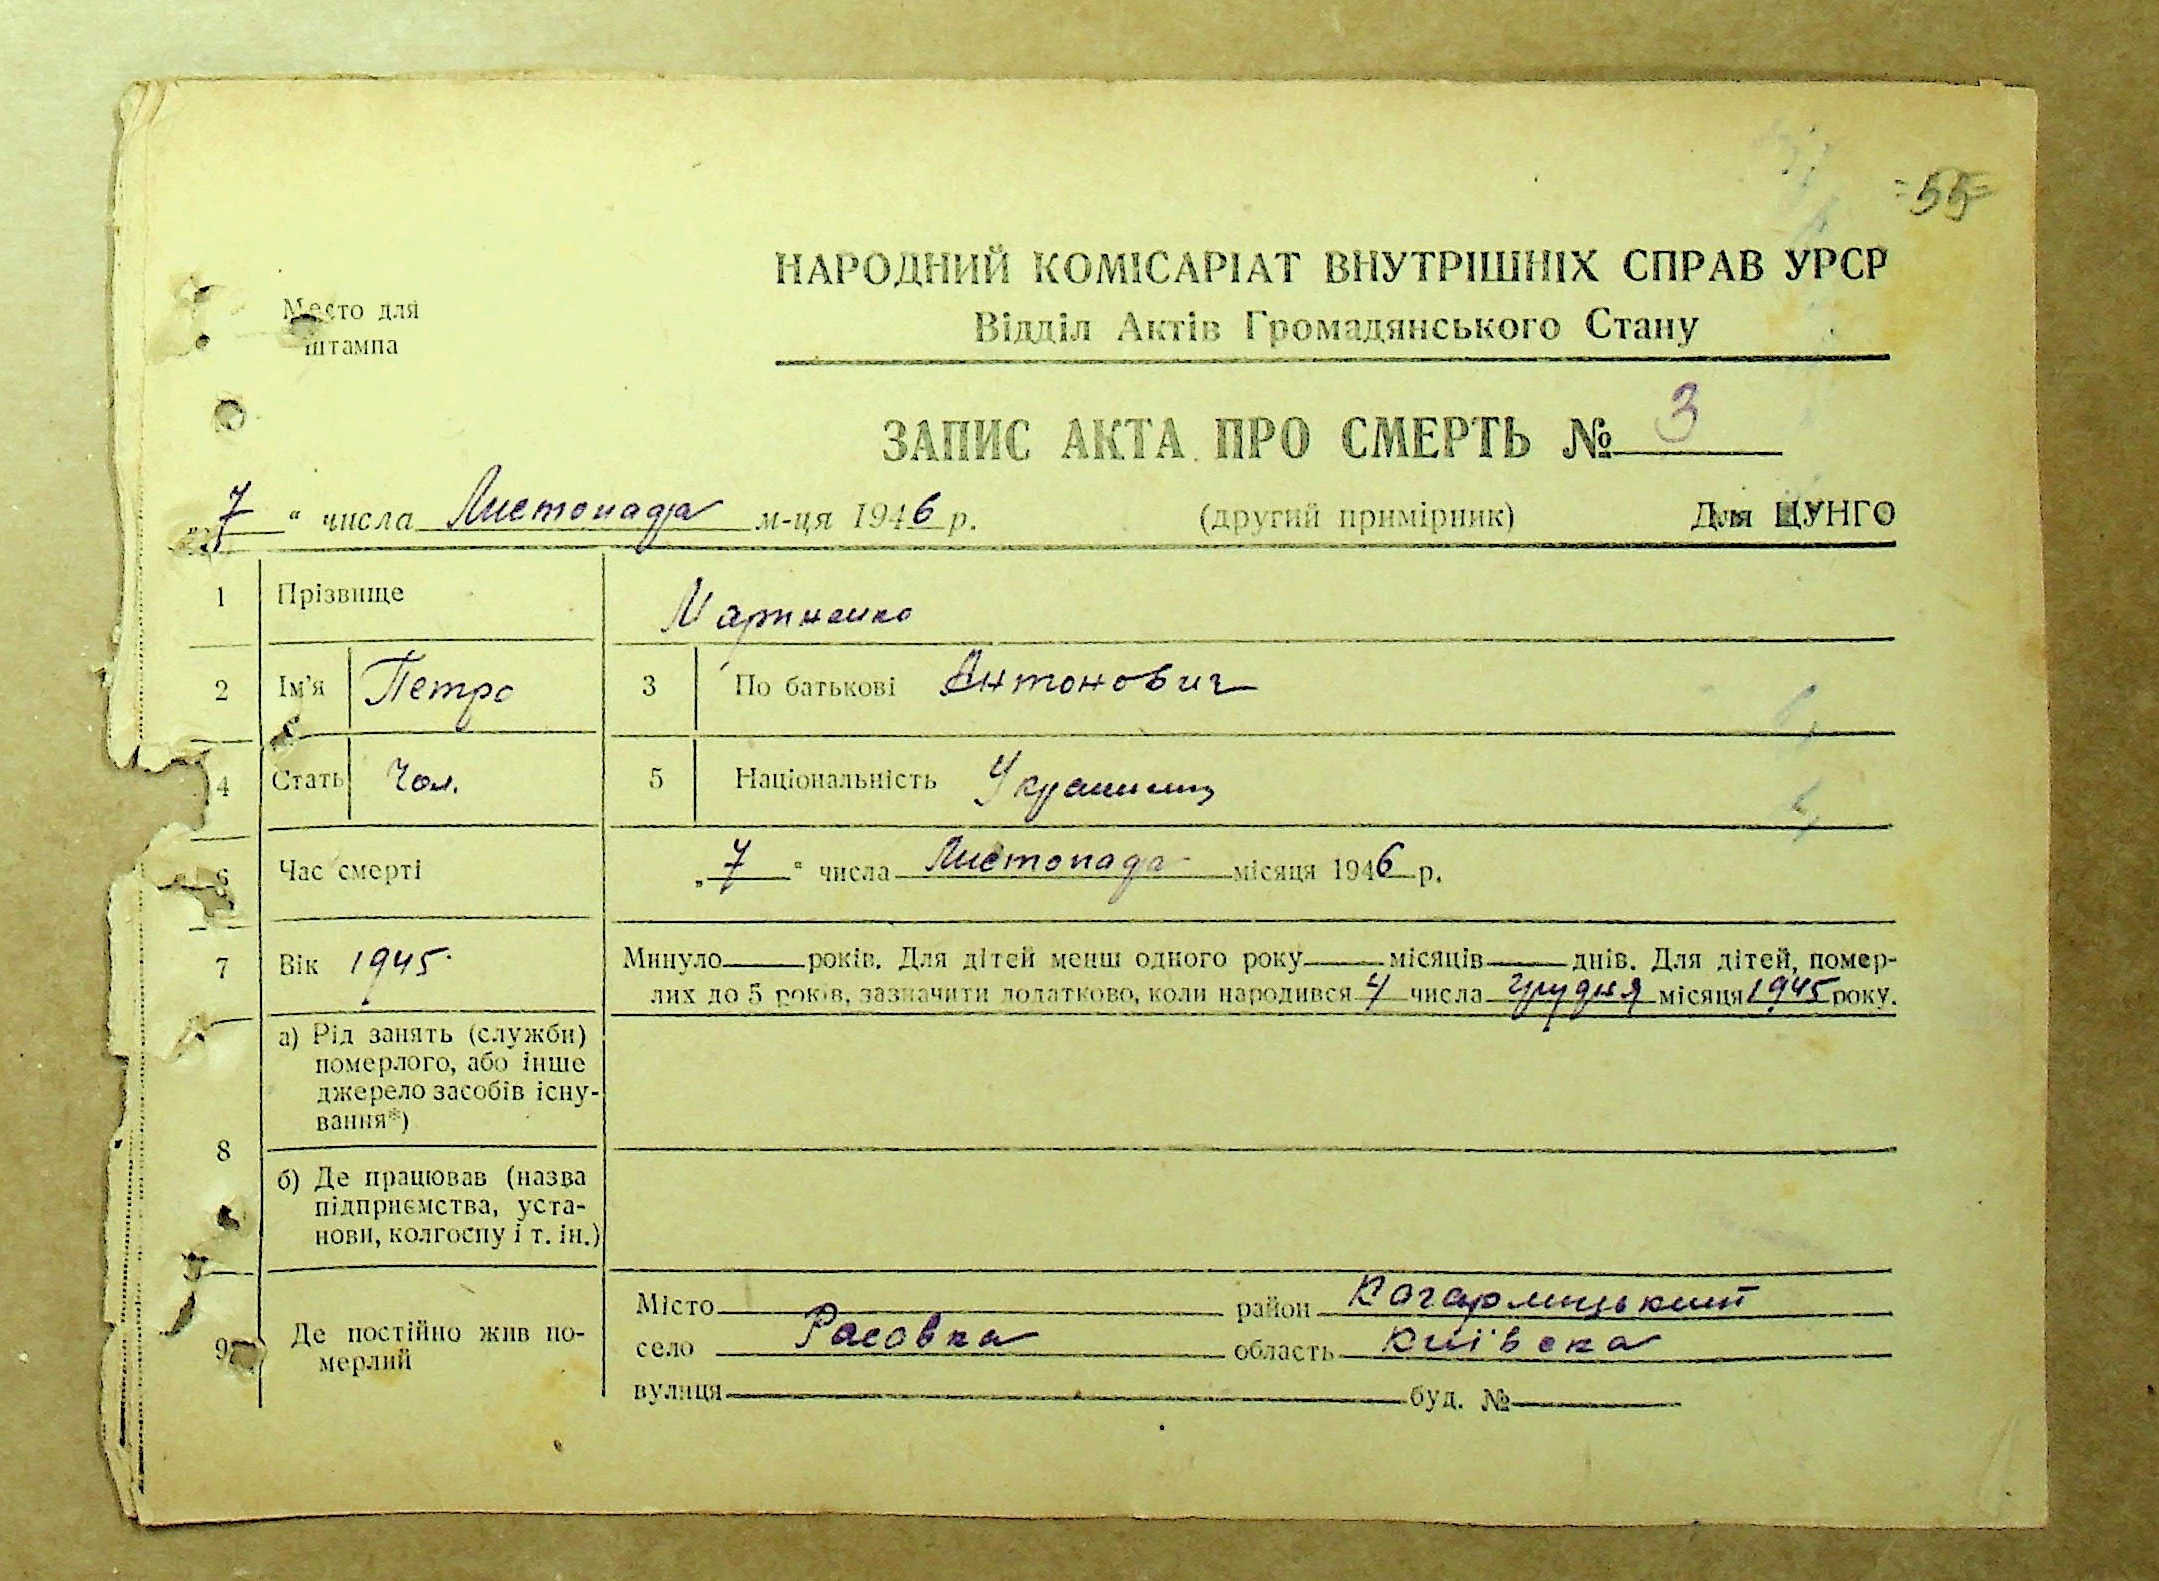 =55=
НАРОДНИЙ КОМІСАРІАТ ВНУТРІШНІХ СПРАВ УРСР
Место для штампа
Відділ Актів Громадянського Стану
ЗАПИС АКТА ПРО СМЕРТЬ № 3
„7“ числа Листопада м-ця 1946 р. (другий примірник) Для ЦУНГО
1 Прізвище Мартненко
2 Ім'я Петро 3 По батькові Антонович
4 Стать Чол. 5 Національність Українець
6 Час смерті „7“ числа Листопада місяця 1946 р.
7 Вік 1945 Минуло років. Для дітей менш одного року місяців днів. Для дітей, помер-
лих до 5 років, зазначити додатково, коли народився 4 числа Грудня місяця 1945 року.
8 а) Рід занять (служби)
померлого, або інше
джерело засобів існу-
вання*)
б) Де працював (назва
підприємства, уста-
нови, колгоспу і т. ін.)
9 Де постійно жив по-
мерлий
Місто район Кагарлицький
село Расавка область Київска
вулиця буд. №